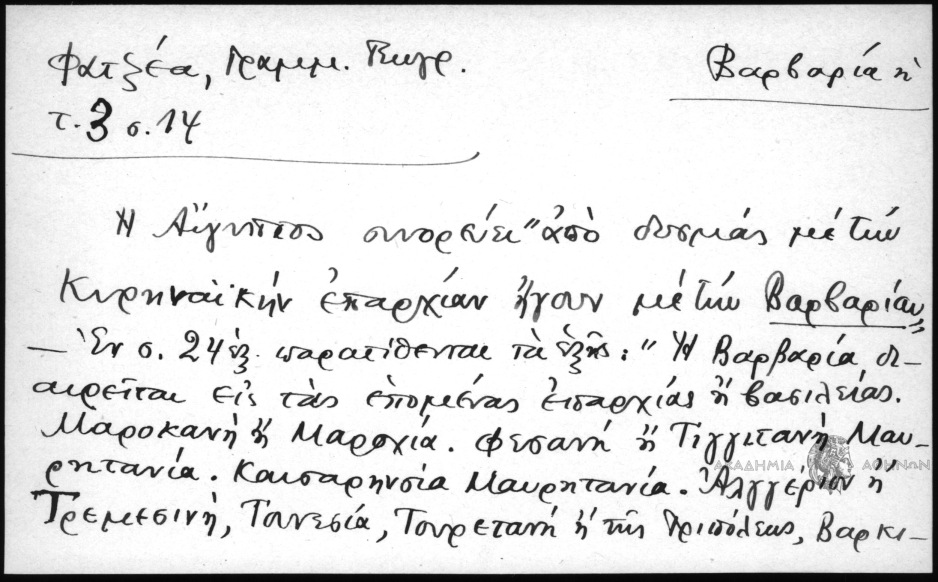 Φατζέα, Γραμμ. Γεωγρ.
Βαρβαρία ἡ
τ. 3 σ. 14
Ἡ Αἴγυπτος συνορεύει "ἀπὸ δυσμὰς μὲ τὴν
Κυρηναϊκὴν ἐπαρχίαν ἤγουν μὲ τὴν Βαρβαρίαν"
— Ἐν σ. 24 ἑξ. παρατίθενται τὰ ἑξῆς: "Ἡ Βαρβαρία δι-
αιρεῖται εἰς τὰς ἑπομένας ἐπαρχίας ἢ βασιλείας.
Μαροκανὴ ἢ Μαροχία. Φεσανὴ ἢ Τιγγιτανὴ Μαυ-
ρητανία. Καισαρηνσία Μαυρητανία. Ἀλγγέριον ἢ
Τρεμεσινὴ, Τουνεσία, Τουρετανὴ ἢ τῆς Τριπόλεως, Βαρκι-
ΑΚΑΔΗΜΙΑ ΑΘΗΝΩΝ